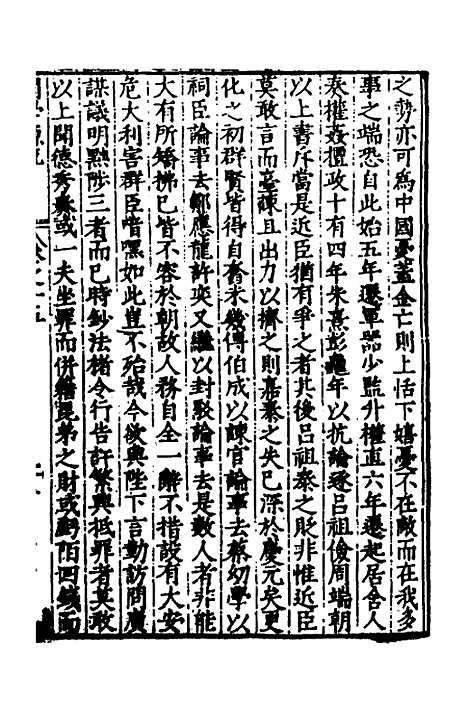 之勢亦可爲中國憂蓋金亡則上恬下嬉憂不在敵而在我多
事之端恐自此始五年遷軍器少監升權直六年遷起居舍人
奏權姦擅政十有四年朱熹彭龜年以抗論逐呂祖儉周端朝
以上書斥當是近臣猶有爭之者其後呂祖泰之貶非惟近臣
莫敢言而臺諫且出力以擠之則嘉泰之失已深於慶元矣更
化之初群賢皆得自奮未幾傅伯成以諫官論事去蔡幼學以
祠臣論事去鄒應龍許奕又繼以封駁論事去是數人者非能
大有所矯拂已皆不容於朝故人務自全一辭不措設有大安
危大利害群臣喑嘿如此豈不殆哉今欲與陛下言勤訪問廣
謀議明黜陟三者而已時鈔法楮令行告訐繁興抵罪者莫敢
以上聞德秀奏或一夫坐罪而併籍昆弟之財或虧陌四錢而